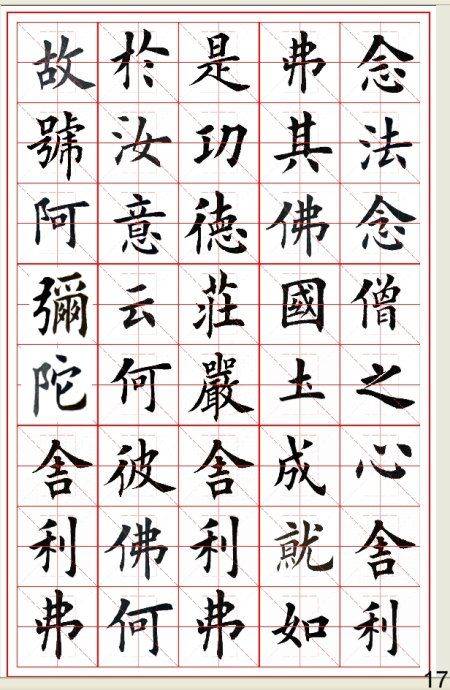 念法念僧之心舍利
弗其佛國土成就如
是功德莊嚴舍利弗
於汝意云何彼佛何
故號阿彌陀舍利弗
17